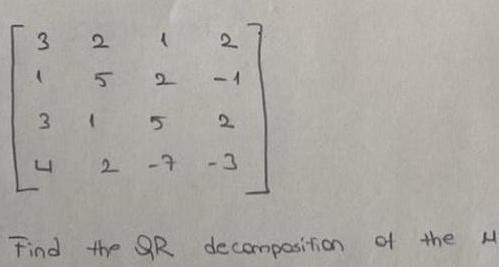 3 2 1 2
1 5 2 -1
3 1 5 2
4 2 -7 -3
Find the QR decomposition of the